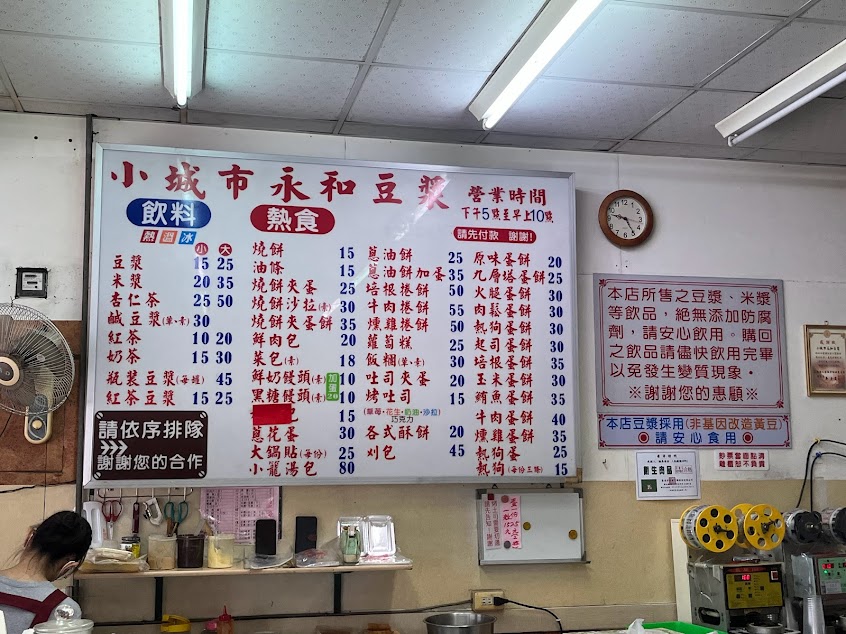 小城市永和豆漿
營業時間
下午5點至早上10點
飲料
熱食
請先付款 謝謝!
熱溫冰 小 大
豆漿 15 25
米漿 20 35
杏仁茶 25 50
鹹豆漿(單、素) 30
紅茶 10 20
奶茶 15 30
瓶裝豆漿(每罐) 45
紅茶豆漿 15 25
請依序排隊
謝謝您的合作
燒餅 15
油條 15
燒餅夾蛋 25
燒餅沙拉(素) 30
燒餅夾蛋餅 35
鮮肉包 20
菜包(素) 18
鮮奶饅頭(素) 10
饅頭(素) 10
加蛋20
包 15
蔥花蛋 30
大鍋貼(每份) 25
小籠湯包 80
蔥油餅 25
蔥油餅加蛋 35
培根捲餅 50
牛肉捲餅 55
燻雞捲餅 50
蘿蔔糕 25
飯糰(單、素) 30
吐司夾蛋 20
烤吐司 15
(草莓、花生、奶油、沙拉)
巧克力
各式酥餅 20
刈包 45
原味蛋餅 20
九層塔蛋餅 25
火腿蛋餅 30
肉鬆蛋餅 30
熱狗蛋餅 30
起司蛋餅 30
培根蛋餅 35
玉米蛋餅 30
鮪魚蛋餅 35
牛肉蛋餅 40
燻雞蛋餅 35
熱狗 25
熱狗(每份三條) 15
本店所售之豆漿、米漿
等飲品,絕無添加防腐
劑,請安心飲用。購回
之飲品請儘快飲用完畢
以免發生變質現象。
※謝謝您的惠顧※
本店豆漿採用(非基因改造黃豆)
請安心食用
鈔票當面點清
離櫃恕不負責